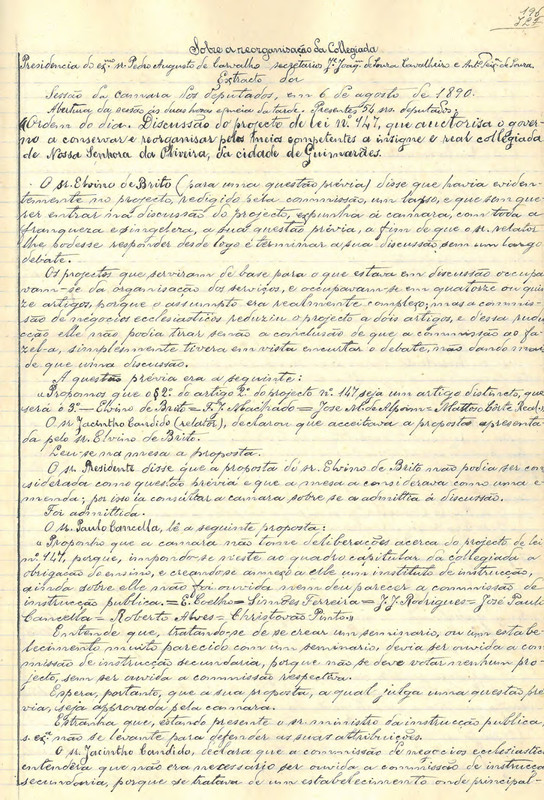 196
Sobre a reorganisação da Collegiada
Presidencia do exmo sr. Pedro Augusto de Carvalho secretarios Je. Joaqm. de Sousa Cavalheiro e Anto. Teixa. de Sousa.
Extracto da
Sessão da camara dos deputados, em 6 de agosto de 1890.
Abertura da sessão ás duas horas e meia da tarde. Presentes 54 srs. deputados:
(Ordem do dia. Discussão do projecto de lei nº 147, que auctorisa o gover-
no a conservar e reorganisar pelos meios competentes a insigne e real collegiada
de Nossa Senhora da Oliveira, da cidade de Guimarães.
O sr. Elvino de Brito (para uma questão prévia) disse que havia eviden-
temente no projecto, redigido pela commissão, um lapso, e que sem que-
rer entrar na discussão do projecto, expunha á camara, com toda a
franqueza e singeleza, a sua questão prévia, a fim de que o sr. relator
lhe podesse responder desde logo e terminar a sua discussão sem um largo
debate.
Os projectos que serviram de base para o que estava em discussão occupa-
vam-se da organisação dos serviços, e occupavam-se em quatorze ou quin-
ze artigos, porque o assumpto era realmente complexo; mas a commis-
são de negocios ecclesiasticos reduziu o projecto a dois artigos, e d'essa redu-
cção elle não podia tirar senão a conclusão de que a commissão ao fa-
zel-a, simplesmente tivera em vista encurtar o debate, não dando mais
de que uma discussão.
A questão prévia era a seguinte:
«Propomos que o § 2º do artigo 2º do projecto nº 147 seja um artigo distincto, que
será o 3º.— Elvino de Brito = F. J. Machado = José M. de Alpoim = Mattoso Côrte Real.»
O sr. Jacintho Candido (relator), declarou que acceitava a proposta apresenta-
da pelo sr. Elvino de Brito.
Leu-se na mesa a proposta.
O sr. Presidente disse que a proposta do sr. Elvino de Brito não podia ser con-
siderada como questão prévia e que a mesa a considerava como uma e-
menda; por isso ia consultar a camara sobre se a admittia á discussão.
Foi admittida.
O sr. Paulo Cancella, lê a seguinte proposta:
«Proponho que a camara não tome deliberações acerca do projecto de lei
nº 147, porque, impondo-se n'este ao quadro capitular da collegiada a
obrigação de ensino, e creando-se annexo a elle um instituto de instrucção,
ainda sobre elle não foi ouvida nem deu parecer a commissão de
instrucção publica. = E. Coelho = Simões Ferreira = J. J. Rodrigues = José Paulo
Cancella = Roberto Alves = Christovão Pinto.»
Entende que, tratando-se de se crear um seminario, ou um estabe-
lecimento muito parecido com um seminario, devia ser ouvida a com-
missão de instrucção secundaria, porque não se deve votar nenhum pro-
jecto, sem ser ouvida a commissão respectiva.
Espera, portanto, que a sua proposta, a qual julga uma questão pré-
via, seja approvada pela camara.
Estranha que, estando presente o sr. ministro da instrucção publica,
s. exa. não se levante para defender as suas attribuições.
O sr. Jacintho Candido, declara que a commissão de negocios ecclesiasticos
entendêra que não era necessario ser ouvida a commissão de instrucção
secundaria, porque se tratava de um estabelecimento onde principal-